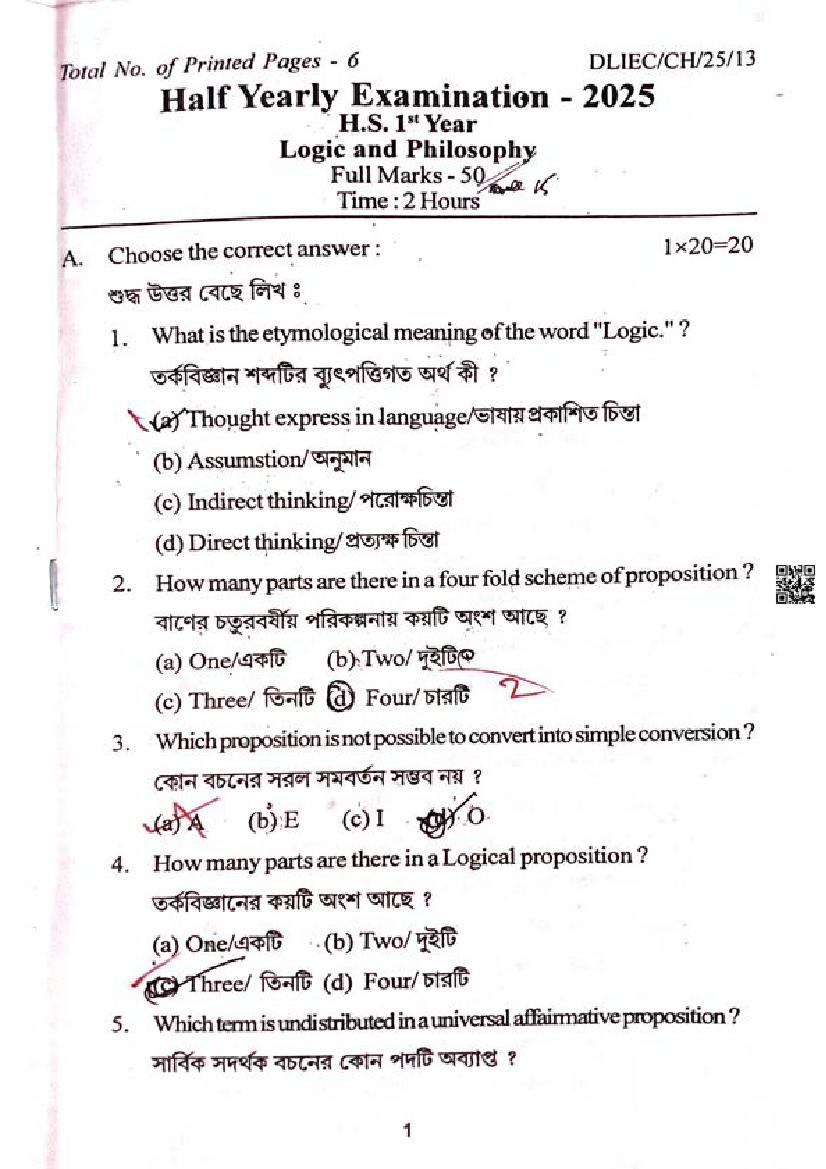 Total No. of Printed Pages - 6 DLIEC/CH/25/13
Half Yearly Examination - 2025
H.S. 1st Year
Logic and Philosophy
Full Marks - 50
Time : 2 Hours
A. Choose the correct answer : 1×20=20
শুদ্ধ উত্তর বেছে লিখ ঃ
1. What is the etymological meaning of the word "Logic." ?
তর্কবিজ্ঞান শব্দটির ব্যুৎপত্তিগত অর্থ কী ?
(a) Thought express in language/ভাষায় প্রকাশিত চিন্তা
(b) Assumstion/অনুমান
(c) Indirect thinking/ পরোক্ষচিন্তা
(d) Direct thinking/প্রত্যক্ষ চিন্তা
2. How many parts are there in a four fold scheme of proposition ?
বাণের চতুরবর্ষীয় পরিকল্পনায় কয়টি অংশ আছে ?
(a) One/একটি (b) Two/ দুইটি
(c) Three/ তিনটি (d) Four/ চারটি 2
3. Which proposition is not possible to convert into simple conversion ?
কোন বচনের সরল সমবর্তন সম্ভব নয় ?
(a) A (b) E (c) I (d) O
4. How many parts are there in a Logical proposition ?
তর্কবিজ্ঞানের কয়টি অংশ আছে ?
(a) One/একটি (b) Two/ দুইটি
(c) Three/ তিনটি (d) Four/ চারটি
5. Which term is undistributed in a universal affairmative proposition ?
সার্বিক সদর্থক বচনের কোন পদটি অব্যাপ্ত ?
1